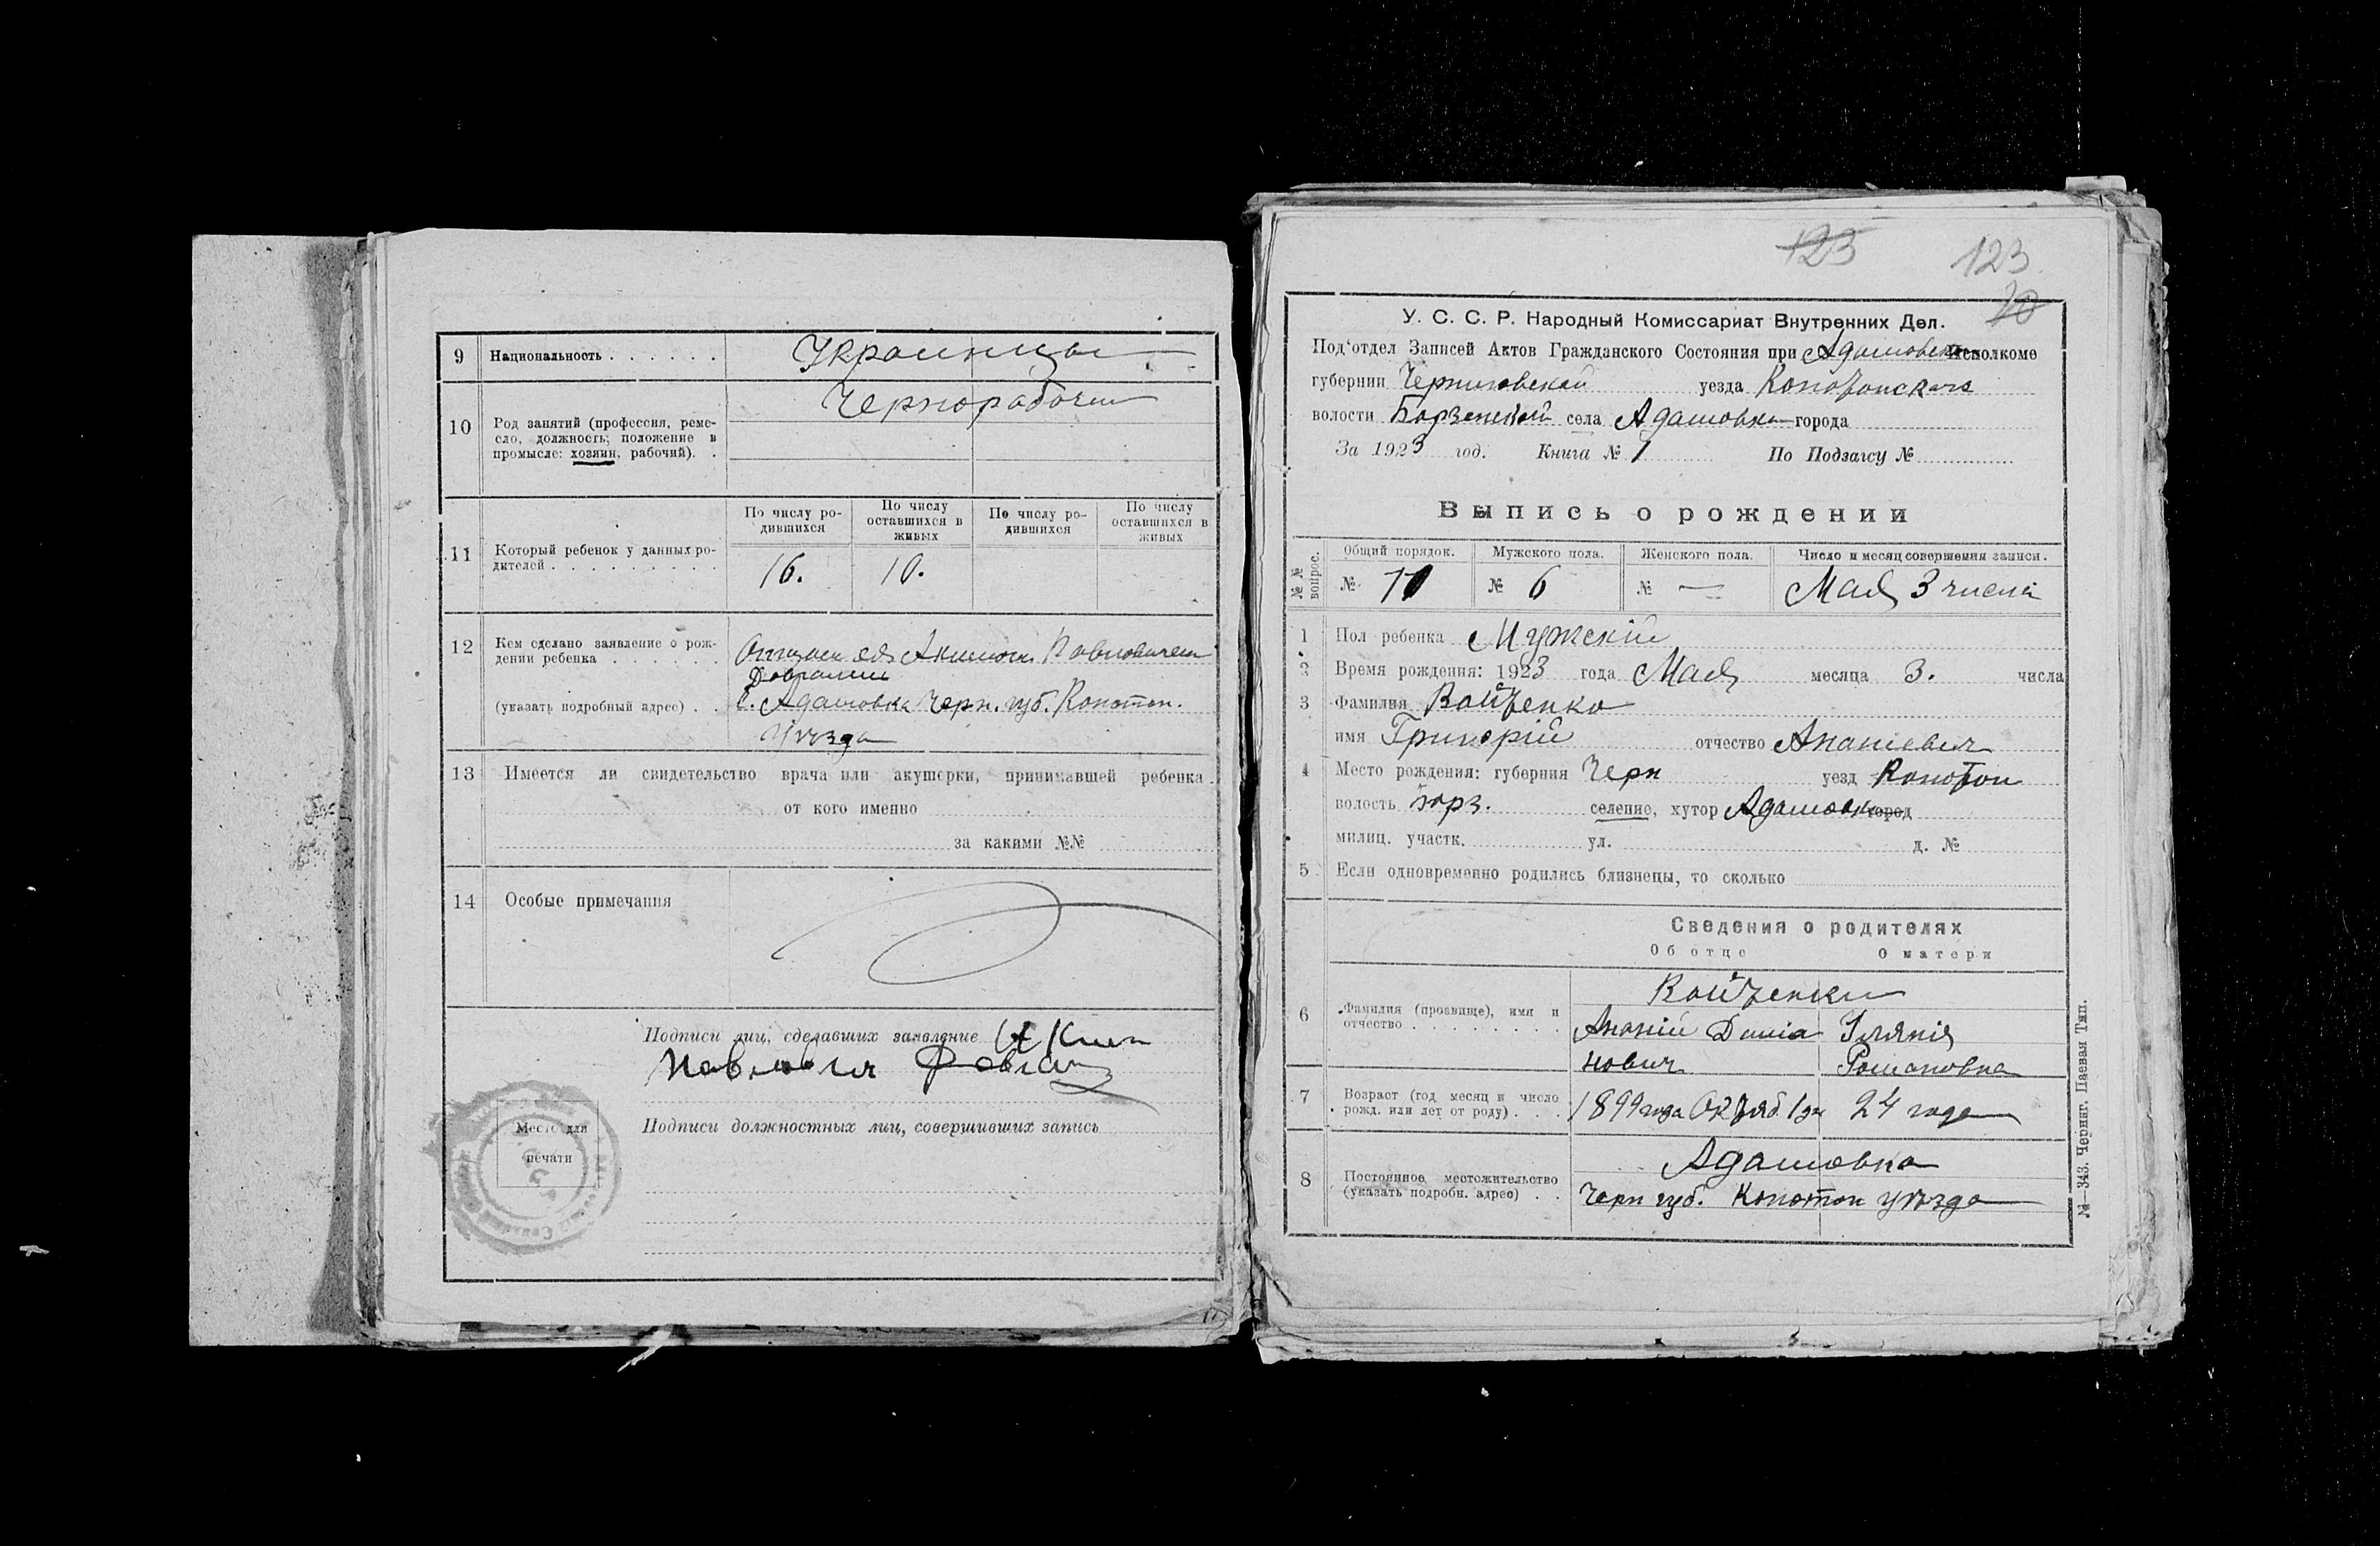 9 Национальность . . . . . . Украинцы
Чернорабочии
10 Род занятий (профессия, реме-
сло, должность, положение в
промысле: хозяин, рабочий). .
По числу ро-
дившихся
По числу
оставшихся в
живых
По числу ро-
дившихся
По числу
оставшихся в
живых
11 Который ребенок у данных ро-
дителей . . . . . . . . . 16. 10.
12 Кем сделано заявление о рож-
дении ребенка . . . . . . Павловичем
(указать подробный адрес) . . с. Адамовка Черн. губ. Конотоп.
Уѣзда
13 Имеется ли свидетельство врача или акушерки, принимавшей ребенка
от кого именно
за какими №№
14 Особые примечания
Подписи лиц, сделавших заявление
Место для
печати
Подписи должностных лиц, совершивших запись
123 123
У. С. С. Р. Народный Комиссариат Внутренних Дел.
Под'отдел Записей Актов Гражданского Состояния при Адамовском Исполкоме
губернии Черниговской уезда Конотопскаго
волости Борзенской села Адамовки города
За 1923 год. Книга № 1 По Подзагсу №
Выпись о рождении
№№ вопрос.
Общий порядок. Мужского пола. Женского пола. Число и месяц совершения записи.
№ 11 № 6 № — Мая 3 числа
1 Пол ребенка Мужскій
2 Время рождения: 1923 года Мая месяца 3. числа
3 Фамилия Войтенко
имя Григорій отчество Ананіевич
4 Место рождения: губерния Черн уезд Конотоп
волость Борз. селение, хутор Адамовк город
милиц. участк. ул. д. №
5 Если одновременно родились близнецы, то сколько
Сведения о родителях
Об отце О матери
Войтенки
6 Фамилия (прозвище), имя и
отчество . . . . . . . . . Ананій Даміа
нович Романовна
7 Возраст (год месяц и число
рожд. или лет от роду) . . . 1899 года Октяб 1 дн 24 года
8 Постоянное местожительство
(указать подробн. адрес) . . Адамовка
Черн губ. Конотоп уѣзда
№—343. Черниг. Паевая Тип.